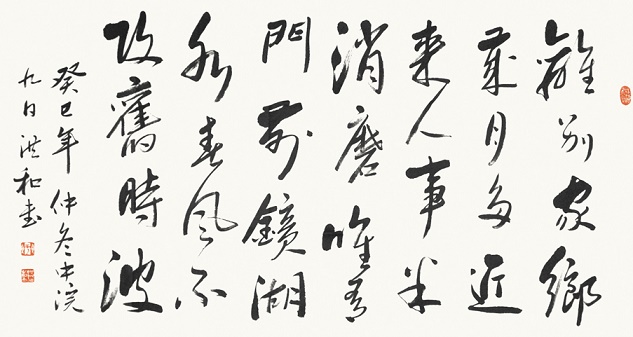 離別家鄉
歲月多近
來人事半
消磨唯有
門前鏡湖
水春風不
改舊時波
癸巳年仲冬中浣
九日洪和書